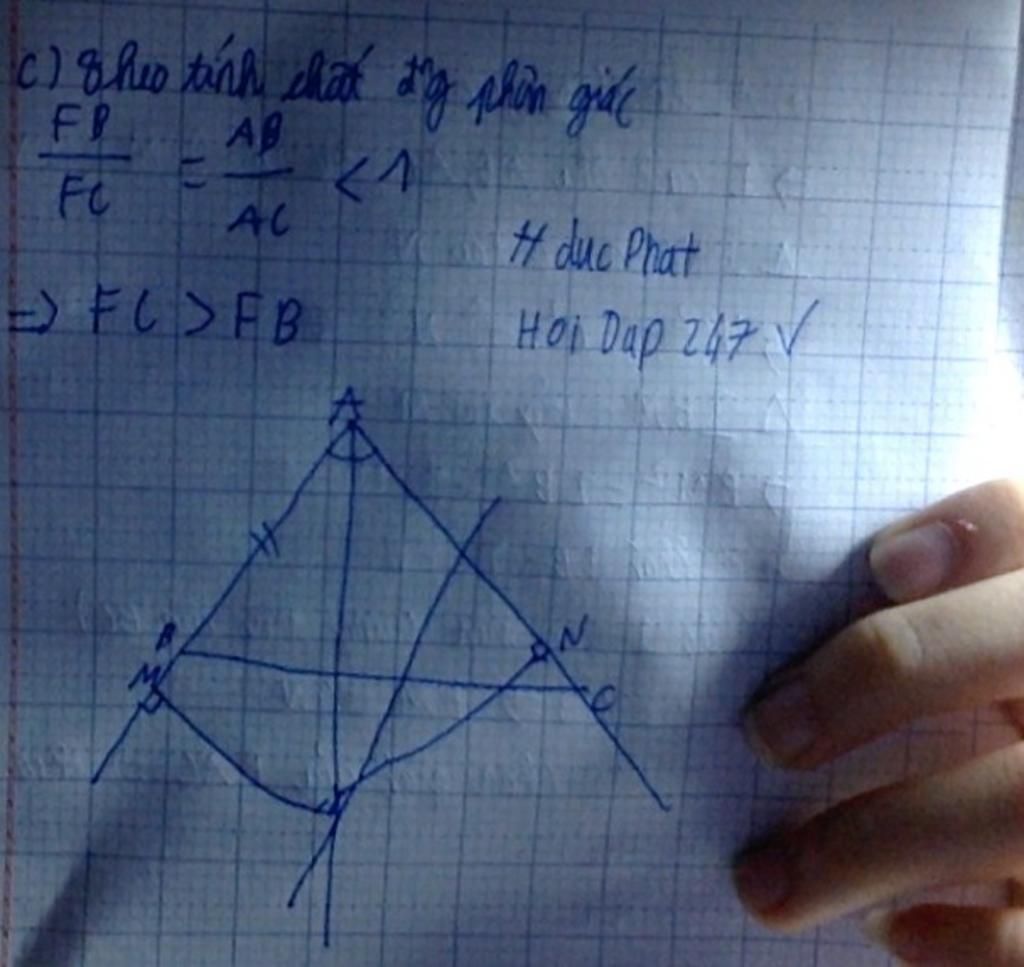 c) Theo tính chất đg phân giác
FB/FC = AB/AC < 1
# duc Phat
=> FC > FB
Hoi Dap 247 √
A
B
N
M
C